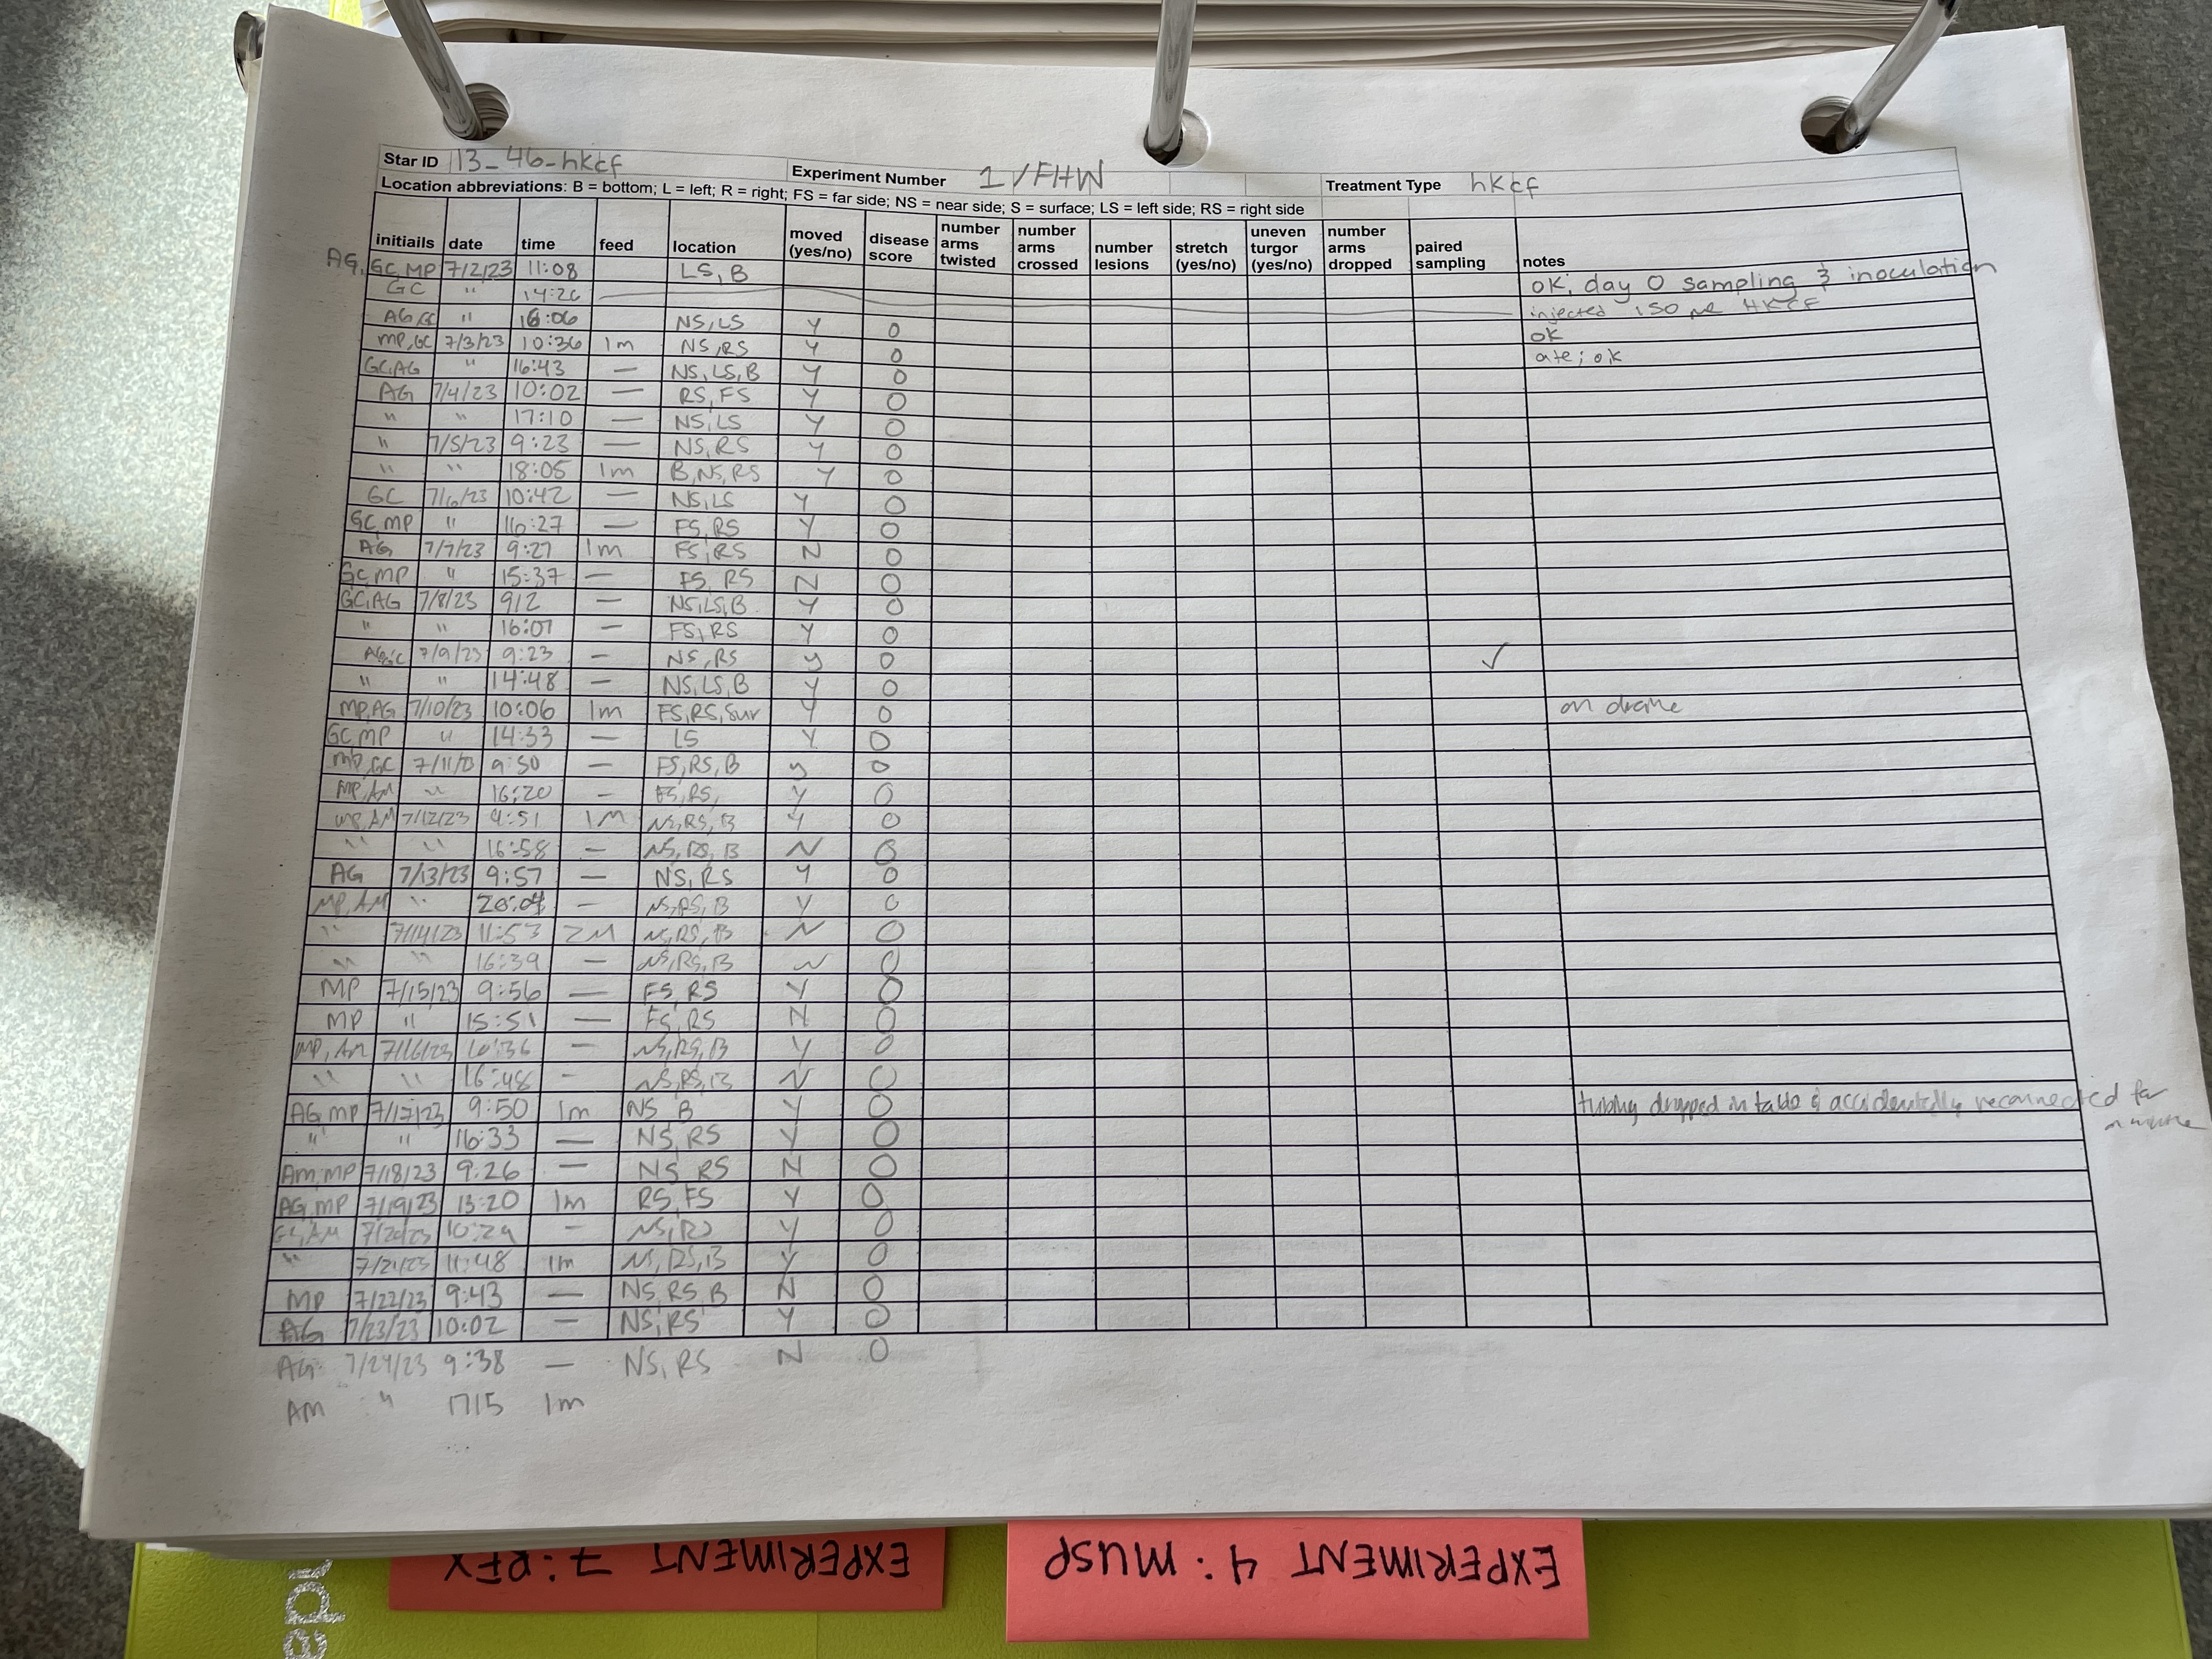 Star ID 13_46-hkcf Experiment Number 1/FHW Treatment Type hkcf
Location abbreviations: B = bottom; L = left; R = right; FS = far side; NS = near side; S = surface; LS = left side; RS = right side
initiails date time feed location moved (yes/no) disease score number arms twisted number arms crossed number lesions stretch (yes/no) uneven turgor (yes/no) number arms dropped paired sampling notes
AG, GC, MP 7/2/23 11:08 LS, B ok, day 0 sampling & inoculation
GC " 14:26 injected 150 HKCF
AG, GC " 16:06 NS, LS Y 0 ok
MP, GC 7/3/23 10:36 1m NS, RS Y 0 ate; ok
GC, AG " 16:43 — NS, LS, B Y 0
AG 7/4/23 10:02 — RS, FS Y 0
" " 17:10 — NS, LS Y 0
" 7/5/23 9:23 — NS, RS Y 0
" " 18:05 1m B, NS, RS Y 0
GC 7/6/23 10:42 — NS, LS Y 0
GC, MP " 16:27 — FS, RS Y 0
AG 7/7/23 9:27 1m FS, RS N 0
GC, MP " 15:37 — FS, RS N 0
GC, AG 7/8/23 912 — NS, LS, B Y 0
" " 16:07 — FS, RS Y 0
AG, GC 7/9/23 9:23 — NS, RS y 0 ✓
" " 14:48 — NS, LS, B Y 0
MP, AG 7/10/23 10:06 1m FS, RS, Sur Y 0 on
GC, MP " 14:33 — LS Y 0
MP, GC 7/11/23 9:50 — FS, RS, B y 0
MP, AM " 16:20 — FS, RS, Y 0
MP, AM 7/12/23 9:51 1M NS, RS, B Y 0
" " 16:58 — NS, RS, B N 0
AG 7/13/23 9:57 — NS, RS Y 0
MP, AM " — NS, RS, B Y 0
" 7/14/23 11:53 2M NS, RS, B N 0
" " 16:39 — NS, RS, B N 0
MP 7/15/23 9:56 — FS, RS Y 0
MP " 15:51 — FS, RS N 0
MP, AM 7/16/23 10:36 — NS, RS, B Y 0
" " 16:48 — NS, RS, B N 0
AG, MP 7/17/23 9:50 1m NS, B Y 0 tubing dropped in & accidentally reconnected for
" " 16:33 — NS, RS Y 0
AM, MP 7/18/23 9:26 — NS, RS N 0
AG, MP 7/19/23 13:20 1m RS, FS Y 0
GC, AM 7/20/23 10:29 — NS, RS Y 0
" 7/21/23 11:48 1m NS, RS, B Y 0
MP 7/22/23 9:43 — NS, RS, B N 0
AG 7/23/23 10:02 — NS, RS Y 0
AG 7/24/23 9:38 — NS, RS N 0
AM " 1715 1m
EXPERIMENT 7:
EXPERIMENT 4: MUSP